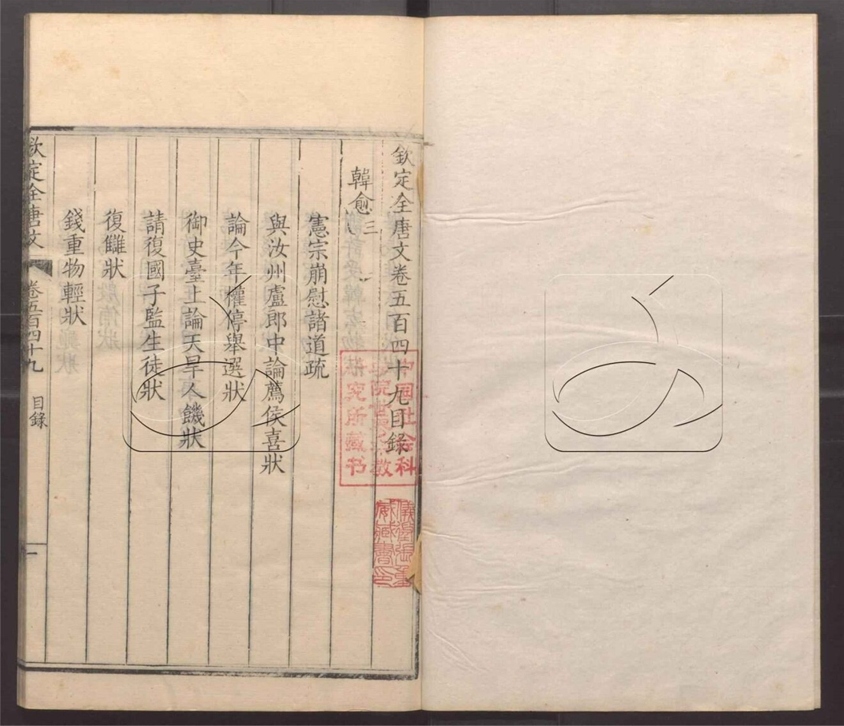 欽定全唐文卷五百四十九目錄
韓愈三
憲宗崩慰諸道疏
與汝州盧郎中論薦侯喜狀
論今年權停舉選狀
御史臺上論天旱人饑狀
請復國子監生徒狀
復讎狀
錢重物輕狀
欽定全唐文
卷五百四十九
目錄
一